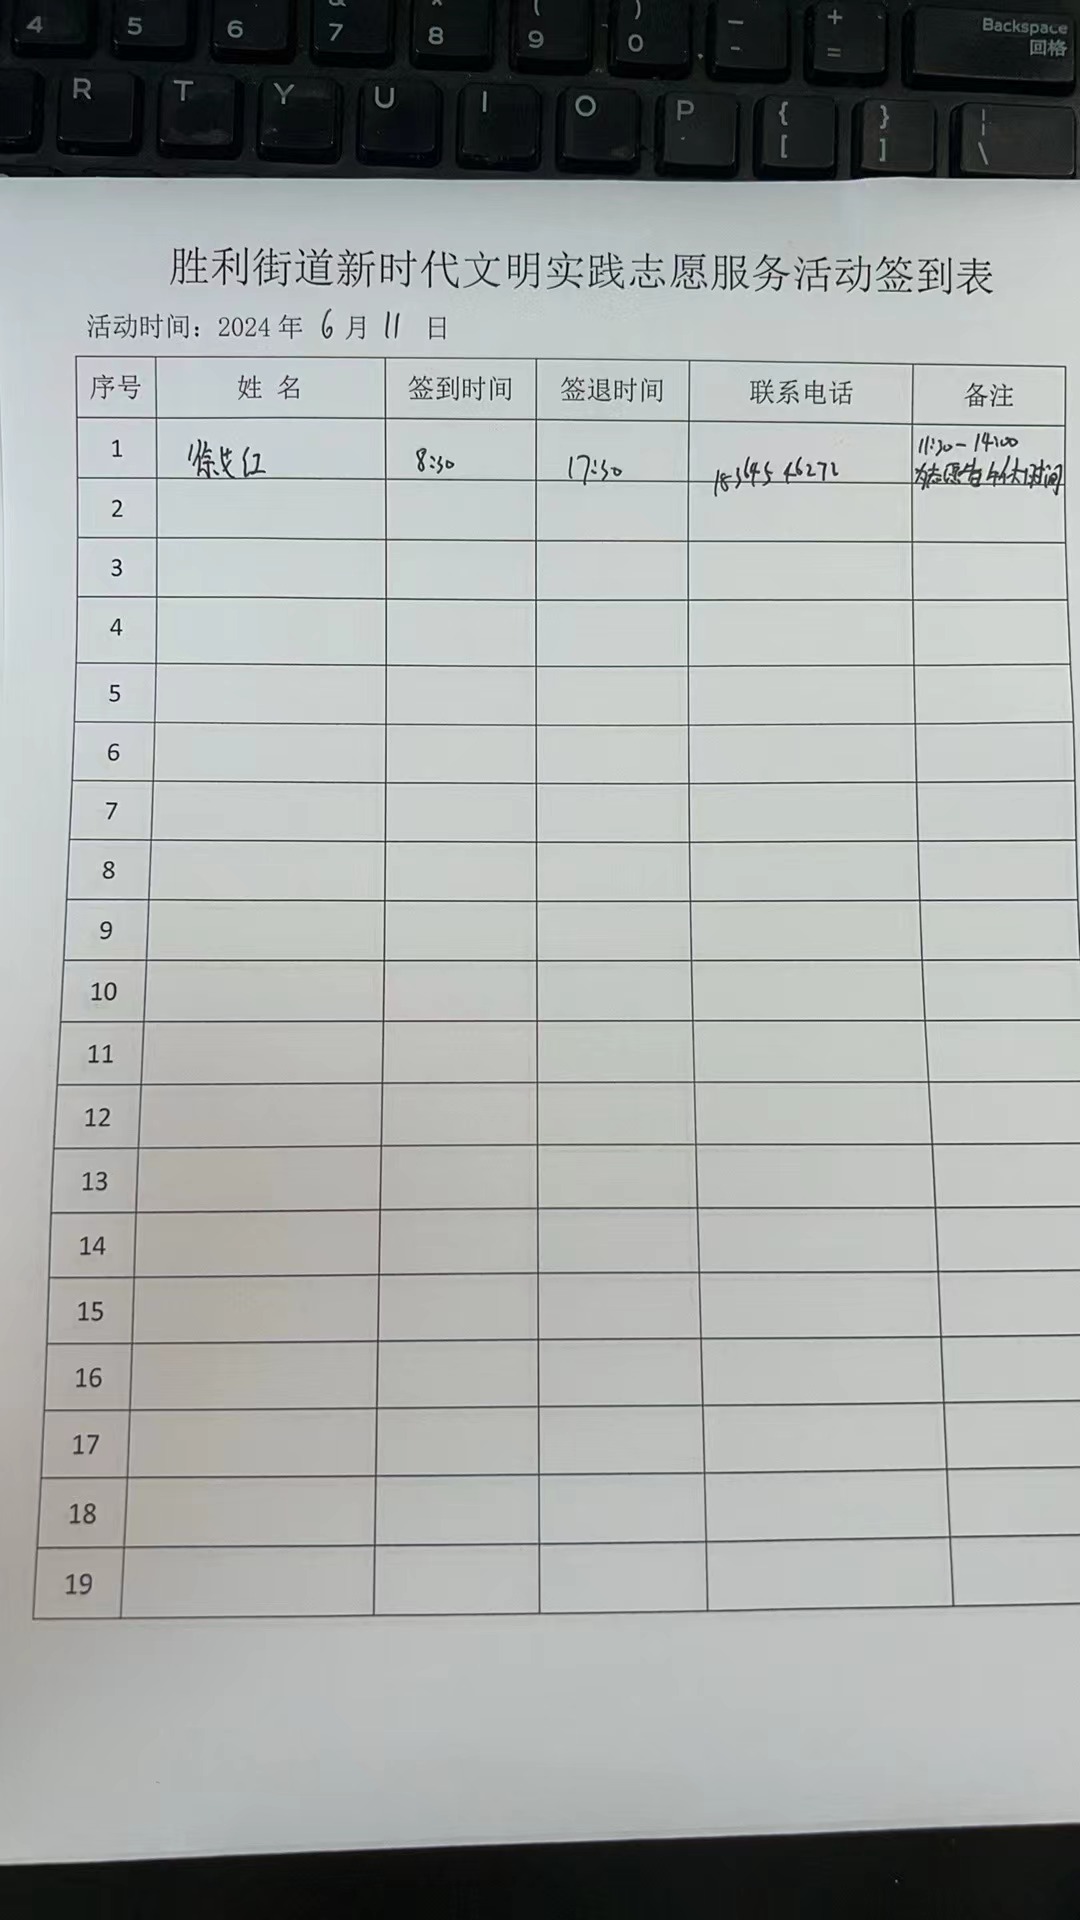 4 5 6 & 7 * 8 ( 9 ) 0 _ - + = Backspace 回格
R T Y U I O P { [ } ] ¦ \
胜利街道新时代文明实践志愿服务活动签到表
活动时间：2024年 6 月 11 日
序号 姓 名 签到时间 签退时间 联系电话 备注
1 徐艾红 8:30 17:30 18364546272 11:30-14:00
为志愿者午休时间
2
3
4
5
6
7
8
9
10
11
12
13
14
15
16
17
18
19